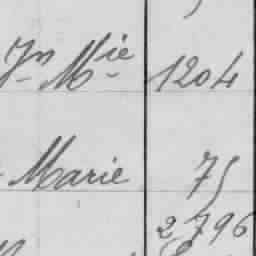 Jn Mie 1204
Marie 75
2,796